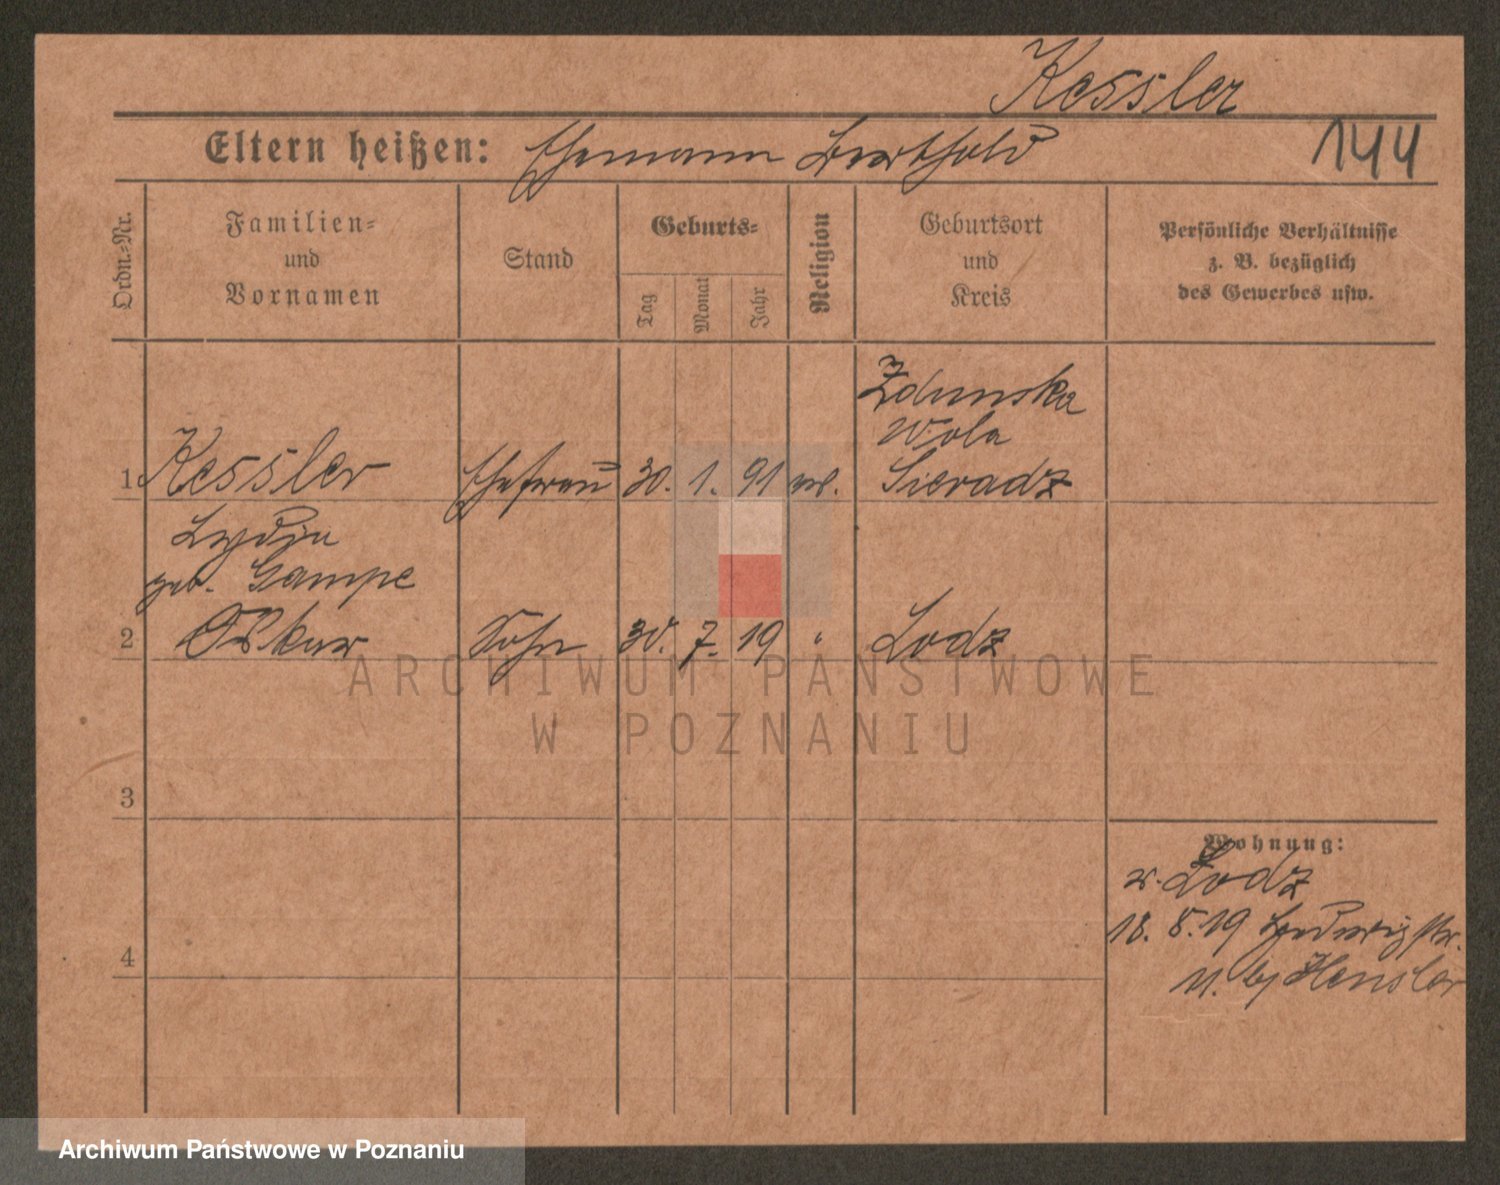 Kessler
Eltern heißen: Ehemann Berthold 144
Ordn.-Nr.
Familien-
und
Vornamen
Stand
Geburts-
Tag
Monat
Jahr
Religion
Geburtsort
und
Kreis
Persönliche Verhältnisse
z. B. bezüglich
des Gewerbes usw.
Zdunska
Wola
1 Kessler Ehefrau 30. 1. 91 Sieradz
Lydia
geb. Gampe
2 Oskar Sohn 30. 7. 19 " Lodz
ARCHIWUM PAŃSTWOWE
W POZNANIU
3
Wohnung:
v. Lodz
18. 8. 19 Ludwigstr.
11. bei Hensler
4
Archiwum Państwowe w Poznaniu